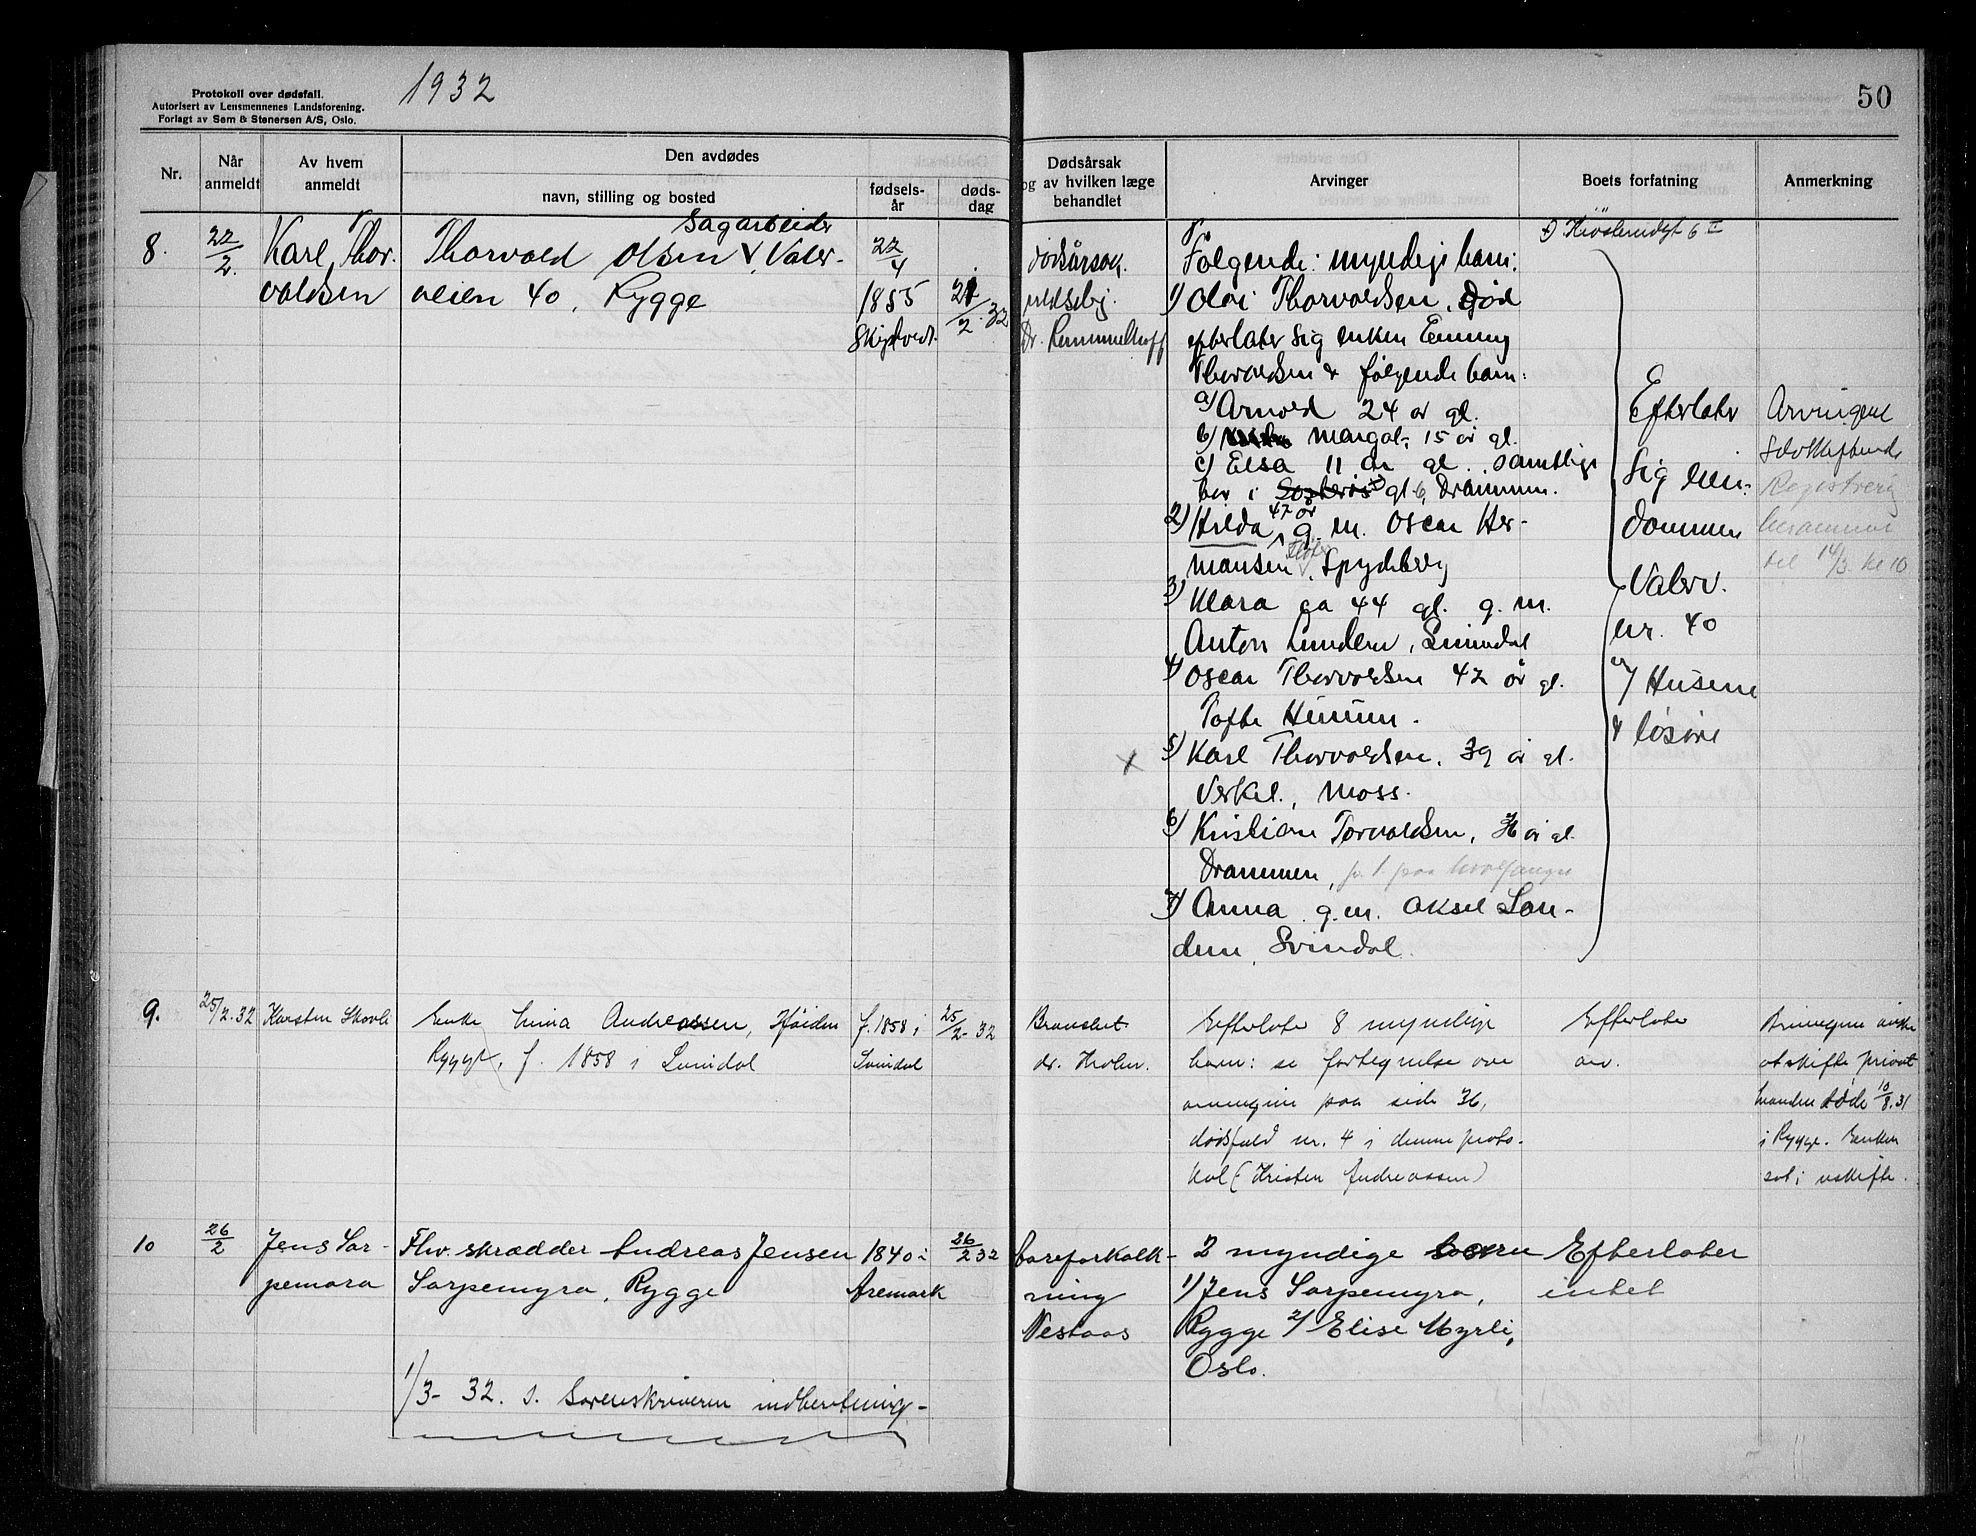 Protokoll over dødsfall.
Autorisert av Lensmennenes Landsforening.
Forlagt av Sem & Stenersen A/S, Oslo.
1932
50
Nr.
Når anmeldt
Av hvem anmeldt
Den avdødes
navn, stilling og bosted
fødsels-år
døds-dag
Dødsårsak og av hvilken læge behandlet
Arvinger
Boets forfatning
Anmerkning
8.
22/2.
Karl Thor-
valdsen
Sagarbeider
Thorvald Olsen V, Valer-
veien 40, Rygge
22/4
1855
Skiptvedt.
21/2.32
dødsårsak.
Dr. Rummelhoff
Følgende: myndige barn:
1) Olai Thorvaldsen, død
efterlater sig enken Emmy
Thorvaldsen & følgende barn:
a) Arnold 24 år gl.
b) Margot, 15 år gl.
c) Elsa 11 år gl. samtlige
bor i gt 6, Drammen.
2) Hilda 47 år g. m. Oscar Her-
mansen, Spydeberg
3) Klara ca 44 gl. g. m.
Anton Lunden, Svindal
4) Oscar Thorvaldsen 42 år gl.
Tofte Hurum.
5) Karl Thorvaldsen, 39 år gl.
Verket, Moss.
6) Kristian Torvaldsen, år gl.
Drammen,
7) Anna g.m. Aksel Lun-
den, Svindal.
Efterlater
sig eien-
dommen
Valerv.
nr. 40
Husene
& løsøre
Arvingene
selvskiftende
Registrering
berammet
til 14/3. kl 10
9.
25/2.32
Karsten Skovli
Enke Andreassen, Høiden
Rygge, f. 1858 i Svindal
f. 1858 i
Svindal
25/2 32
Brandset
dr. Holm.
Efterlater 8 myndige
barn: se fortegnelse over
arvingene paa side 36,
dødsfald nr. 4 i denne proto-
kol (Kristen Andreassen)
Efterlater
arv.
Arvingene ønsker
at skifte privat
Manden døde 10/8.31
i Rygge. Enken
sat i uskifte.
10
26/2
Jens Sar-
pemara
Fhv. skrædder Andreas Jensen
Sarpemyra, Rygge
1840 i
Aremark
26/2 32
Aareforkalk-
ning
Nestaas
2 myndige barn
1) Jens Sarpemyra,
Rygge 2) Elise Myrli,
Oslo.
Efterlater
intet
1/3- 32. s. Sorenskriveren indberetning-